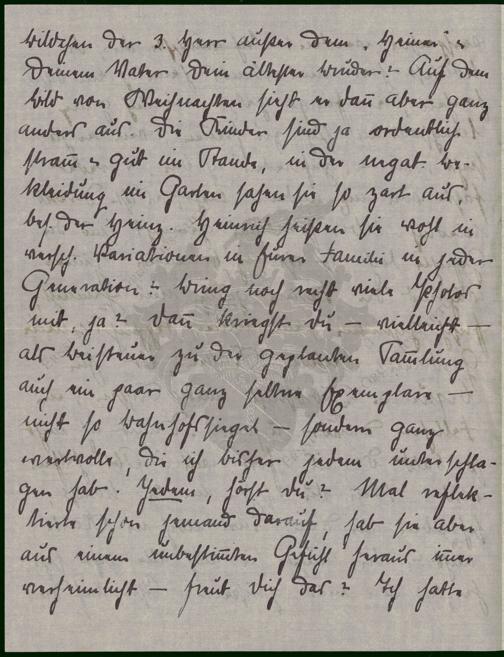 bildchen der 3. Herr außer dem „Heiner" u.
Deinem Vater Dein ältester Bruder? Auf dem
Bild von Weihnachten sieht er dañ aber ganz
anders aus. Die Kinder sind ja ordentlich
stram̄ u. gut im Stande, in der negat. Be-
kleidung im Garten sahen sie so zart aus,
bes. der Heinz. Heinrich heißen sie wohl in
versch. Variationen in Eurer Familie in jeder
Generation? Bring noch recht viele Photos
mit, ja? Dañ kriegst Du — vielleicht —
als Beisteuer zu der geplanten Sam̄lung
auch ein paar ganz seltne Exemplare —
nicht so Bahnhofssiegel — sondern ganz
wertvolle, die ich bisher jedem unterschla-
gen hab. Jedem, hörst Du? Mal reflek-
tierte schon jemand darauf, hab sie aber
aus einem unbestim̄ten Gefühl heraus im̄er
verheimlicht — freut Dich das? Ich hatte